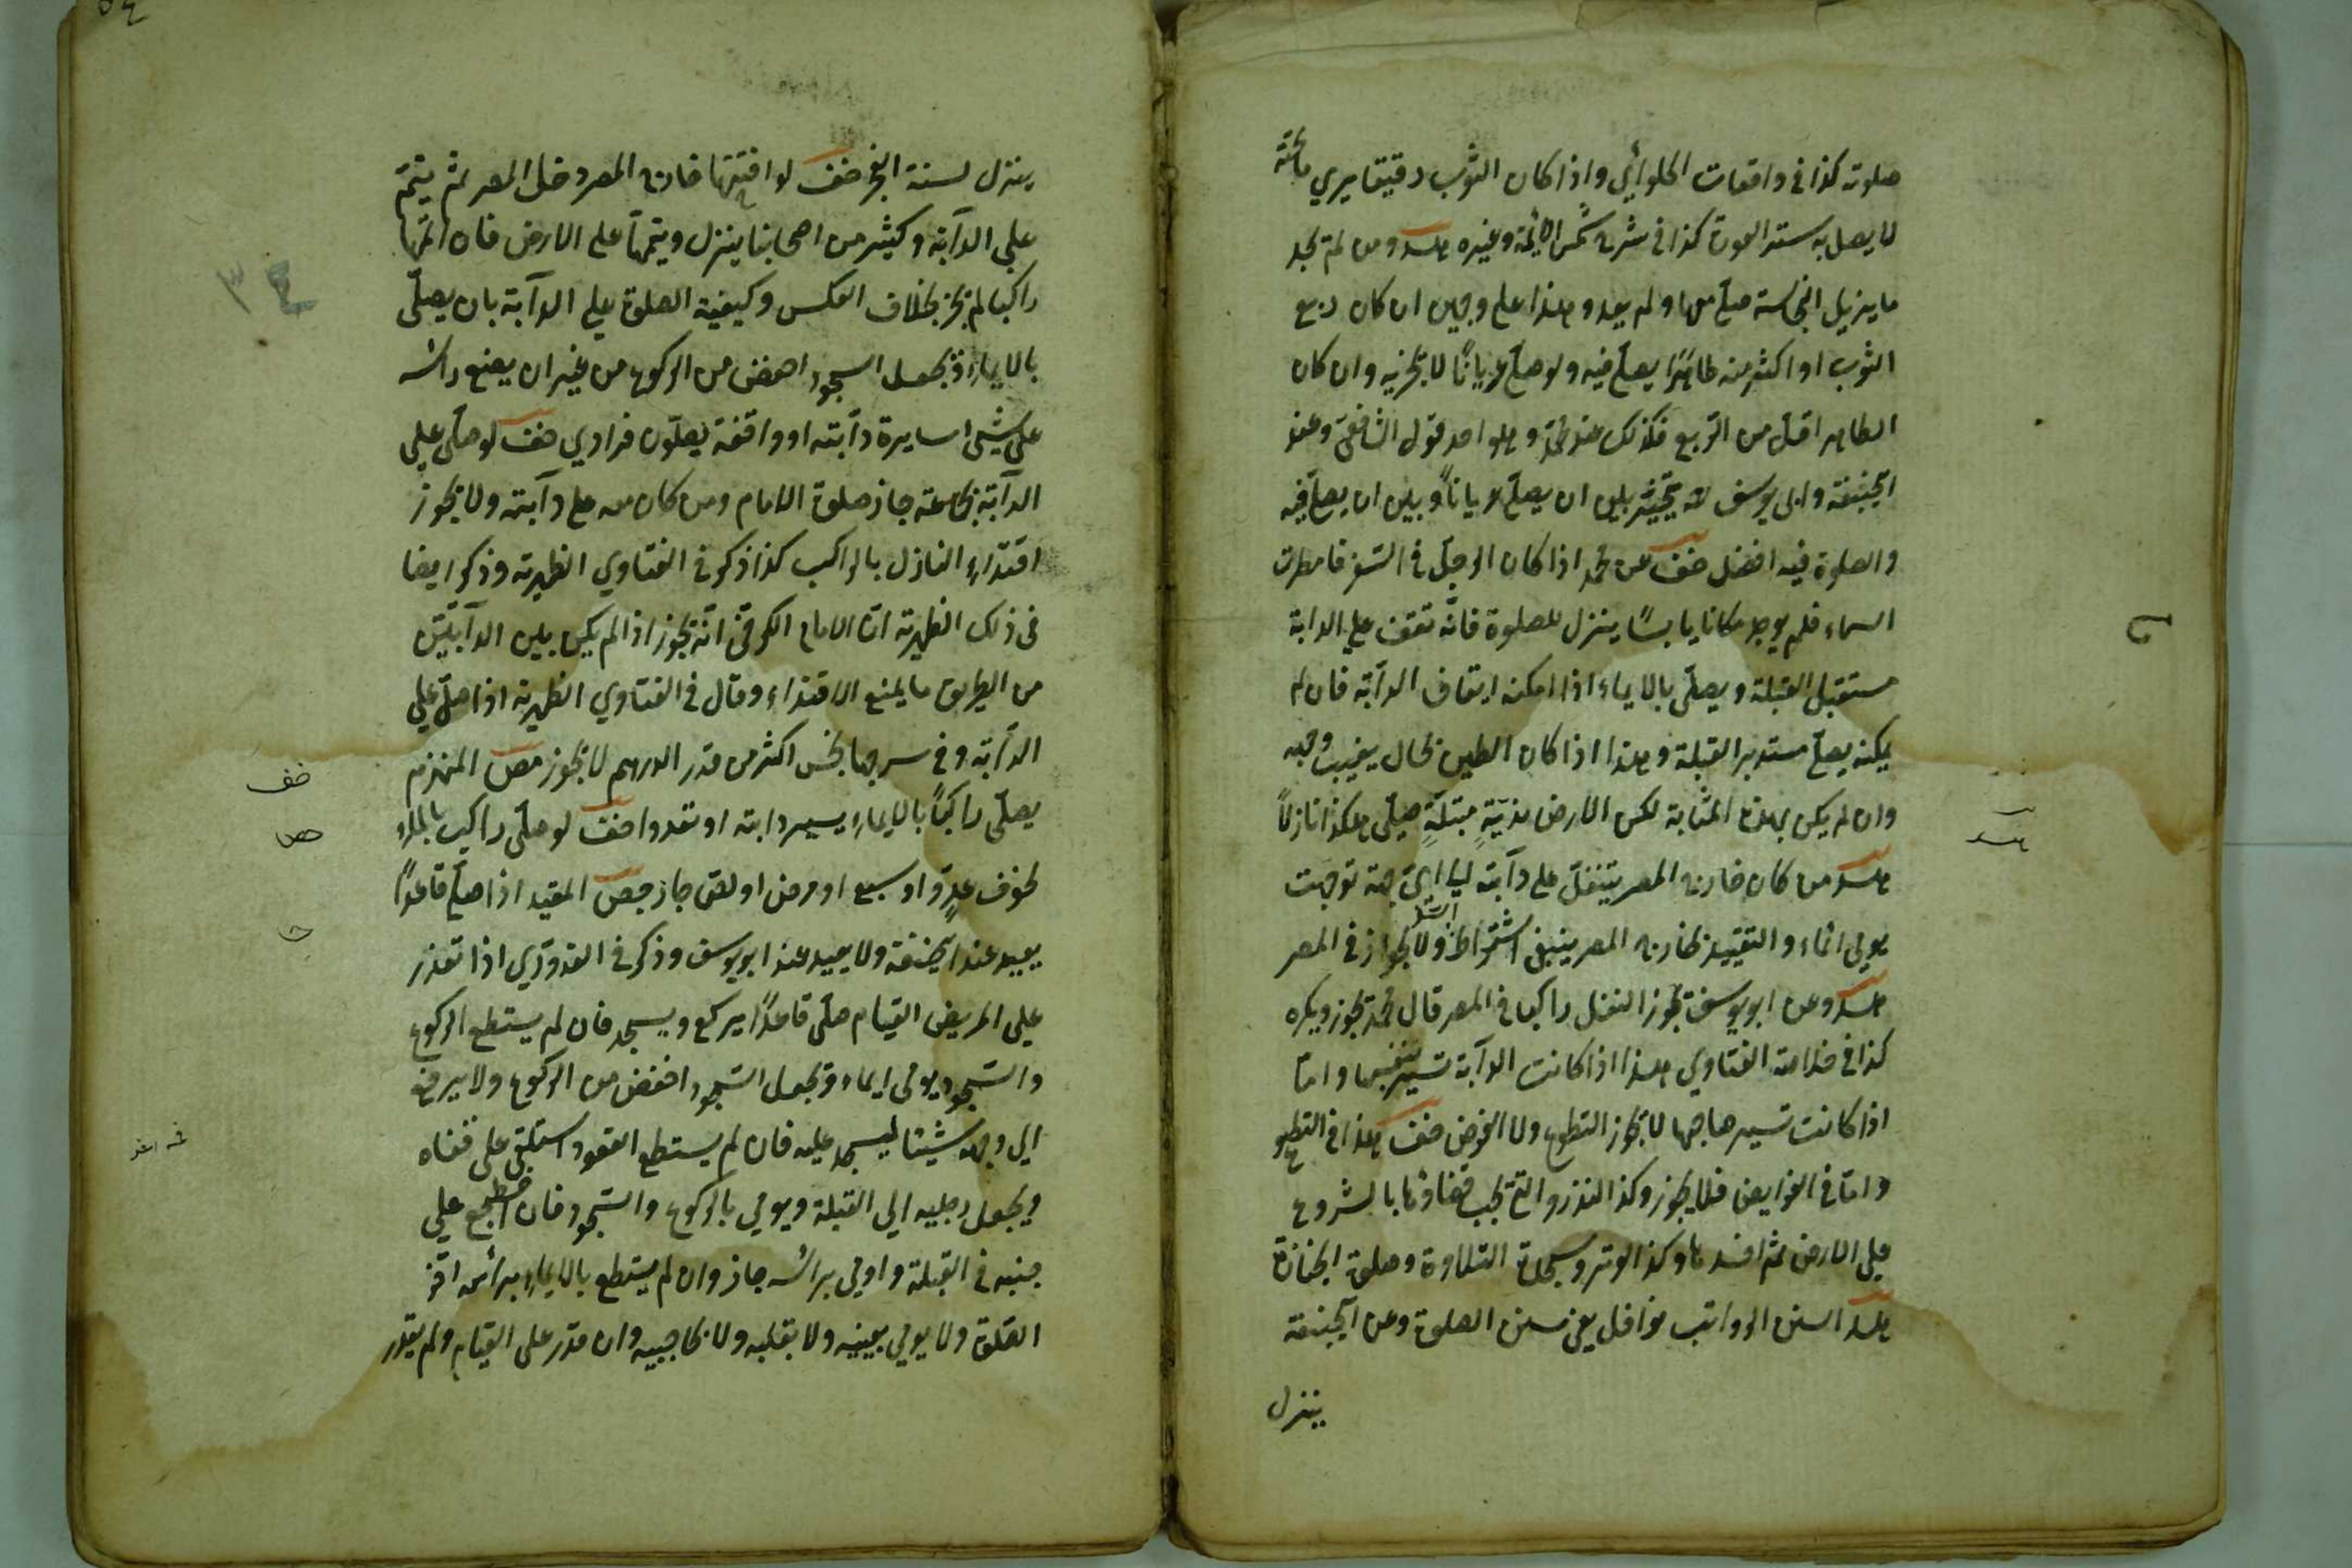 صلوته كذا في واقعات الحلوائي واذا كان الثوب دقيقا يري ما تحته
لا يصل به ستر العورة كذا في شرح شمس الائمة وغيره هـد ومن لم يجد
ما يزيل النجاسة صلي معها ولم يعد وهذا علي وجهين ان كان ربع
الثوب او اكثر منه طاهرًا يصلّي فيه ولو صلّي عريانًا لا يجزيه وان كان
الطاهر اقل من الربع فكذلك عند محمّد وهو احد قول الشافعي وعند
ابيحنيفة وابي يوسف يتخيّر بين ان يصلّي عريانًا وبين ان يصلّي فيه
والصلوة فيه افضل خف عن محمد اذا كان الرجل في السفر فامطرت
السماء فلم يوجد مكانا يابسًا ينزل للصلوة فانّه تقف علي الدابة
مستقبل القبلة ويصلّي بالايماء اذا امكنه ايقاف الدآبّة فان لم
يمكنه يصلّي مستدبر القبلة وهذا اذا كان الطين بحال يغيب وجهه
وان لم يكن بهذه المثابة لكن الارض نديّةٍ مبتلّةٍ صلّي هكذا نازلاً
هـد من كان خارج المصر يتنفّل علي دآبته الي ايّ جهة توجهت
يومي ايماء والتقييد بخارج المصر ينبغي اشتراط السفر ولا يجوز في المصر
هـد وعن ابو يوسف يجوز النفل راكبا في المصر قال محمّد يجوز ويكره
كذا في خلاصة الفتاوي هذا اذا كانت الدآبّة تسير بنفسها وامّا
اذا كانت تسير صاحبها لا يجوز التطوع ولا الفرض خف هذا في التطوع
وامّا في الفرايض فلا يجوز وكذا النذر والتي يجب قضاؤها بالشروع
علي الارض ثم افسدها وكذا الوتر وسجدة التلاوة وصلوة الجنازة
هـد السنن الرواتب نوافل يعني سنن الصلوة وعن ابيحنيفة
ينزل
ينزل لسنة الفجر خف لو افتتحها خارج المصر دخل المصر ثم يتمّ
علي الدآبّة وكثير من اصحابنا ينزل ويتمّها علي الارض فان اتمّها
راكبا لم يجز بخلاف العكس وكيفية الصلوة علي الدآبة بان يصلّي
بالايماء ويجعل السجود اخفض من الركوع من غير ان يضع راسه
علي شيء سايرة دآبته او واقفة يصلّون فرادي خف لو صلّي علي
الدآبّة بجماعة جاز صلوة الامام ومن كان معه علي دآبته ولا يجوز
اقتداء النازل بالراكب كذا ذكر في الفتاوي الظهيرية وذكر ايضا
في ذلك الظهيرية انّ الامام الكرخي انّه يجوز اذا لم يكن بين الدآبتين
من الطريق ما يمنع الاقتداء وقال في الفتاوي الظهيرية اذا صلّي علي
الدآبّة وفي سرجها نجس اكثر من قدر الدرهم لا يجوز حص المنهزم
يصلّي راكبًا بالايماء يسير دابته او تعدوا خف لو صلّي راكب بايماء
لخوف عدوّ او سبع او مرض او لص جاز حص المقيد اذا صلّي قاعدًا
يعيد عند ابيحنيفة ولا يعيد عند ابو يوسف وذكر في القدوري اذا تعذر
علي المريض القيام صلّي قاعدًا يركع ويسجد فان لم يستطع الركوع
والسجود يومي ايماء ويجعل السّجود اخفض من الركوع ولا يرفع
الي وجهه شيئا ليسجد عليه فان لم يستطع القعود استلقي علي قفاه
ويجعل رجليه الي القبلة ويومي بالركوع والسّجود فان اضطجع علي
جنبه في القبلة واومي براسه جاز وان لم يستطع بالايماء براسه اخر
الصلوة ولا يومي بعينيه ولا بقلبه ولا بحاجبيه وان قدر علي القيام ولم يقدر
٣٤
خف
حص
هـد